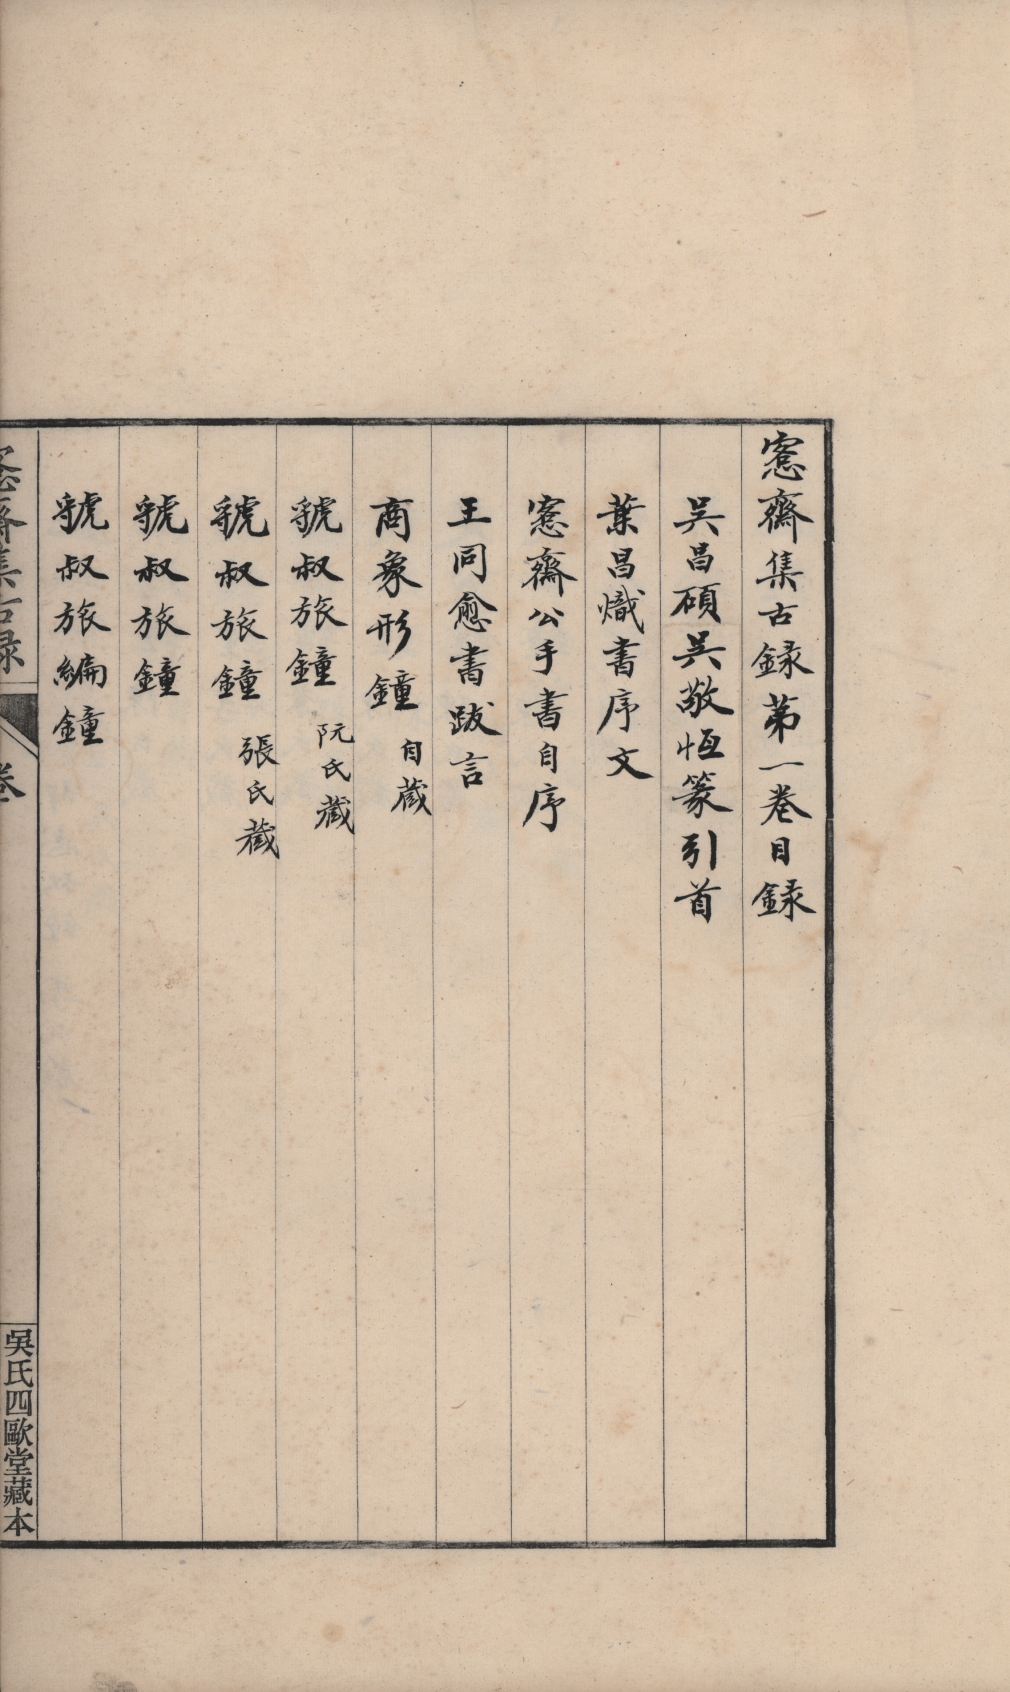 愙齋集古録第一卷目録
吳昌碩吳敬恆篆引首
葉昌熾書序文
愙齋公手書自序
王同愈書跋言
商象形鐘 自藏
虢叔旅鐘 阮氏藏
虢叔旅鐘 張氏藏
虢叔旅鐘
虢叔旅編鐘
愙齋集古録 卷
吳氏四歐堂藏本